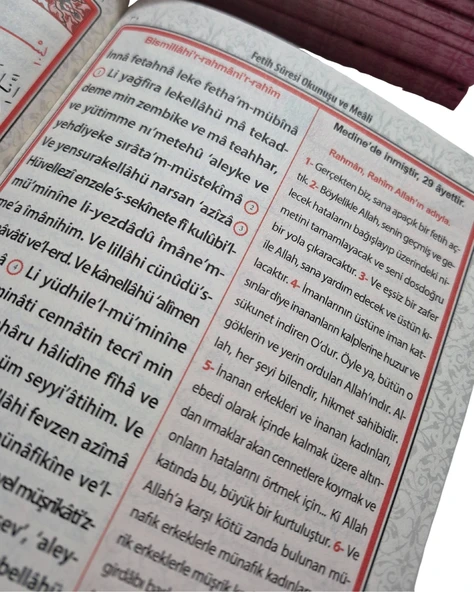 Fetih Sûresi Okunuşu ve Meâli
Bismillâhi'r-rahmâni'r-rahîm
İnnâ fetahnâ leke fetha'm-mübînâ
1 Li yağfira lekellâhü mâ tekad-
deme min zembike ve mâ teahhar,
ve yütimme nı'metehû 'aleyke ve
yehdiyeke sırâta'm-müstekîmâ 2
Ve yensurakellâhü narsan 'azîzâ 3
Hüvellezî enzele's-sekînete fî kulûbi'l-
mü'minîne li-yezdâdû îmâne'm-
me'a îmânihim. Ve lillâhi cünûdü's-
ve'l-erd. Ve kânellâhü 'alîmen
4 Li yüdhile'l-mü'minîne
cennâtin tecrî min
hâlidîne fîhâ ve
seyyi'âtihim. Ve
fevzen azîmâ
ve'l-
'aley-
Medine'de inmiştir, 29 âyettir.
Rahmân, Rahîm Allah'ın adıyla.
1- Gerçekten biz, sana apaçık bir fetih aç-
tık. 2- Böylelikle Allah, senin geçmiş ve ge-
lecek hatalarını bağışlayıp üzerindeki ni-
metini tamamlayacak ve seni dosdoğru
bir yola çıkaracaktır. 3- Ve eşsiz bir zafer
ile Allah, sana yardım edecek ve üstün kı-
lacaktır. 4- İmanlarının üstüne iman kat-
sınlar diye inananların kalplerine huzur ve
sükunet indiren O'dur. Öyle ya, bütün o
göklerin ve yerin orduları Allah'ındır. Al-
lah, her şeyi bilendir, hikmet sahibidir.
5- İnanan erkekleri ve inanan kadınları,
ebedi olarak içinde kalmak üzere altın-
dan ırmaklar akan cennetlere koymak ve
onların hatalarını örtmek için... Ki Allah
katında bu, büyük bir kurtuluştur. 6- Ve
Allah'a karşı kötü zanda bulunan mü-
nafık erkeklerle münafık kadınları
rik erkeklerle müşrik
girdâbı